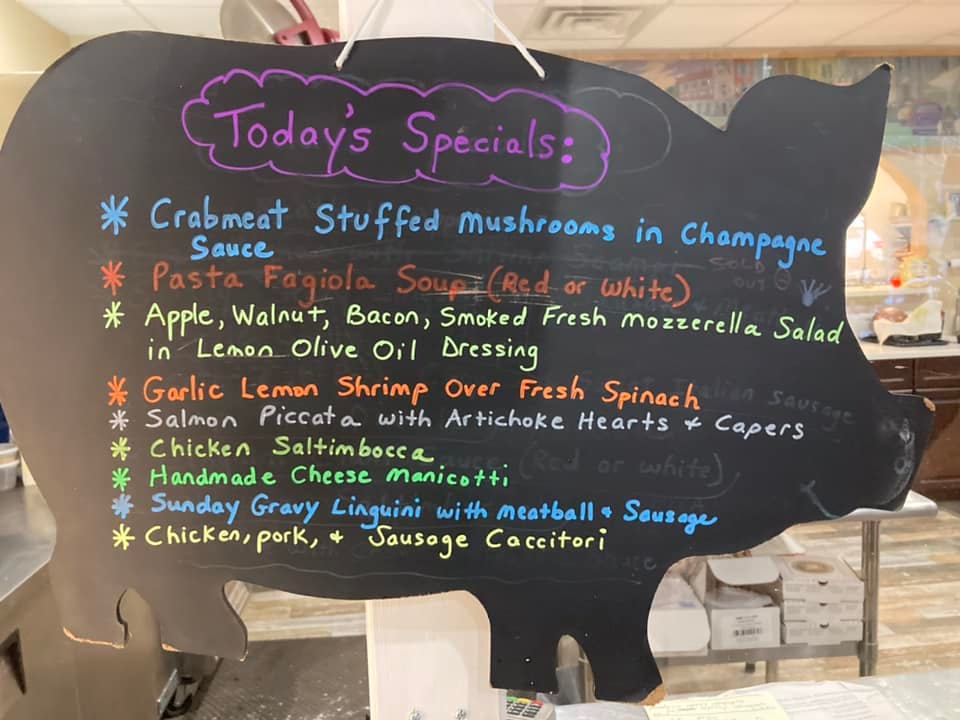 Today's Specials:
* Crabmeat Stuffed Mushrooms in Champagne
Sauce
SOLD
OUT
* Pasta Fagiola Soup (Red or white)
* Apple, Walnut, Bacon, Smoked Fresh mozzerella Salad
in Lemon Olive Oil Dressing
* Garlic Lemon Shrimp Over Fresh Spinach
Italian sausage
* Salmon Piccata with Artichoke Hearts & Capers
* Chicken Saltimbocca
(Red or white)
* Handmade Cheese manicotti
* Sunday Gravy Linguini with meatball & Sausage
* Chicken, pork, & Sausage Caccitori